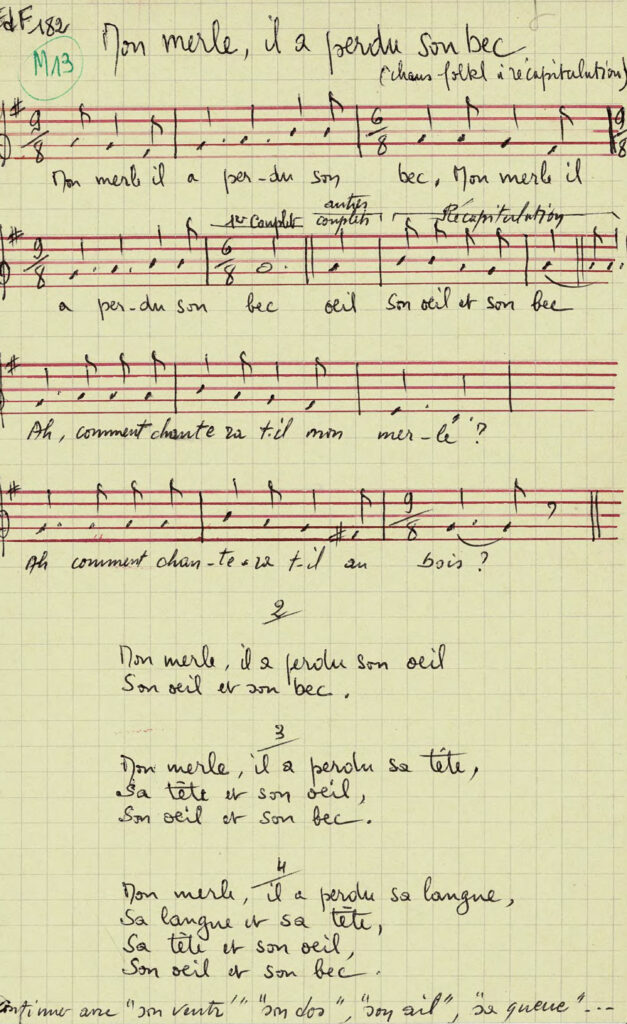 EdF 182
M13
Mon merle, il a perdu son bec
(chans folkl à récapitulation)
9/8 6/8 9/8
Mon merle il a per-du son bec, Mon merle il
1er Couplet autres couplets Récapitulation
9/8 6/8
a per-du son bec oeil Son oeil et son bec
Ah, comment chante ra t-il mon mer-le ?
9/8
Ah comment chan-te-ra t-il au bois ?
2
Mon merle, il a perdu son oeil
Son oeil et son bec.
3
Mon merle, il a perdu sa tête,
Sa tête et son oeil,
Son oeil et son bec.
4
Mon merle, il a perdu sa langue,
Sa langue et sa tête,
Sa tête et son oeil,
Son oeil et son bec.
Continuer avec "son ventr'" "son dos", "son ail", "sa queue"...